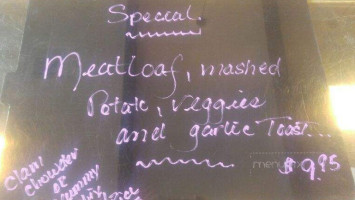 Special.
Meatloaf, mashed
Potatoe, veggies
and garlic Toast...
$9.95
Clam
Chowder
or